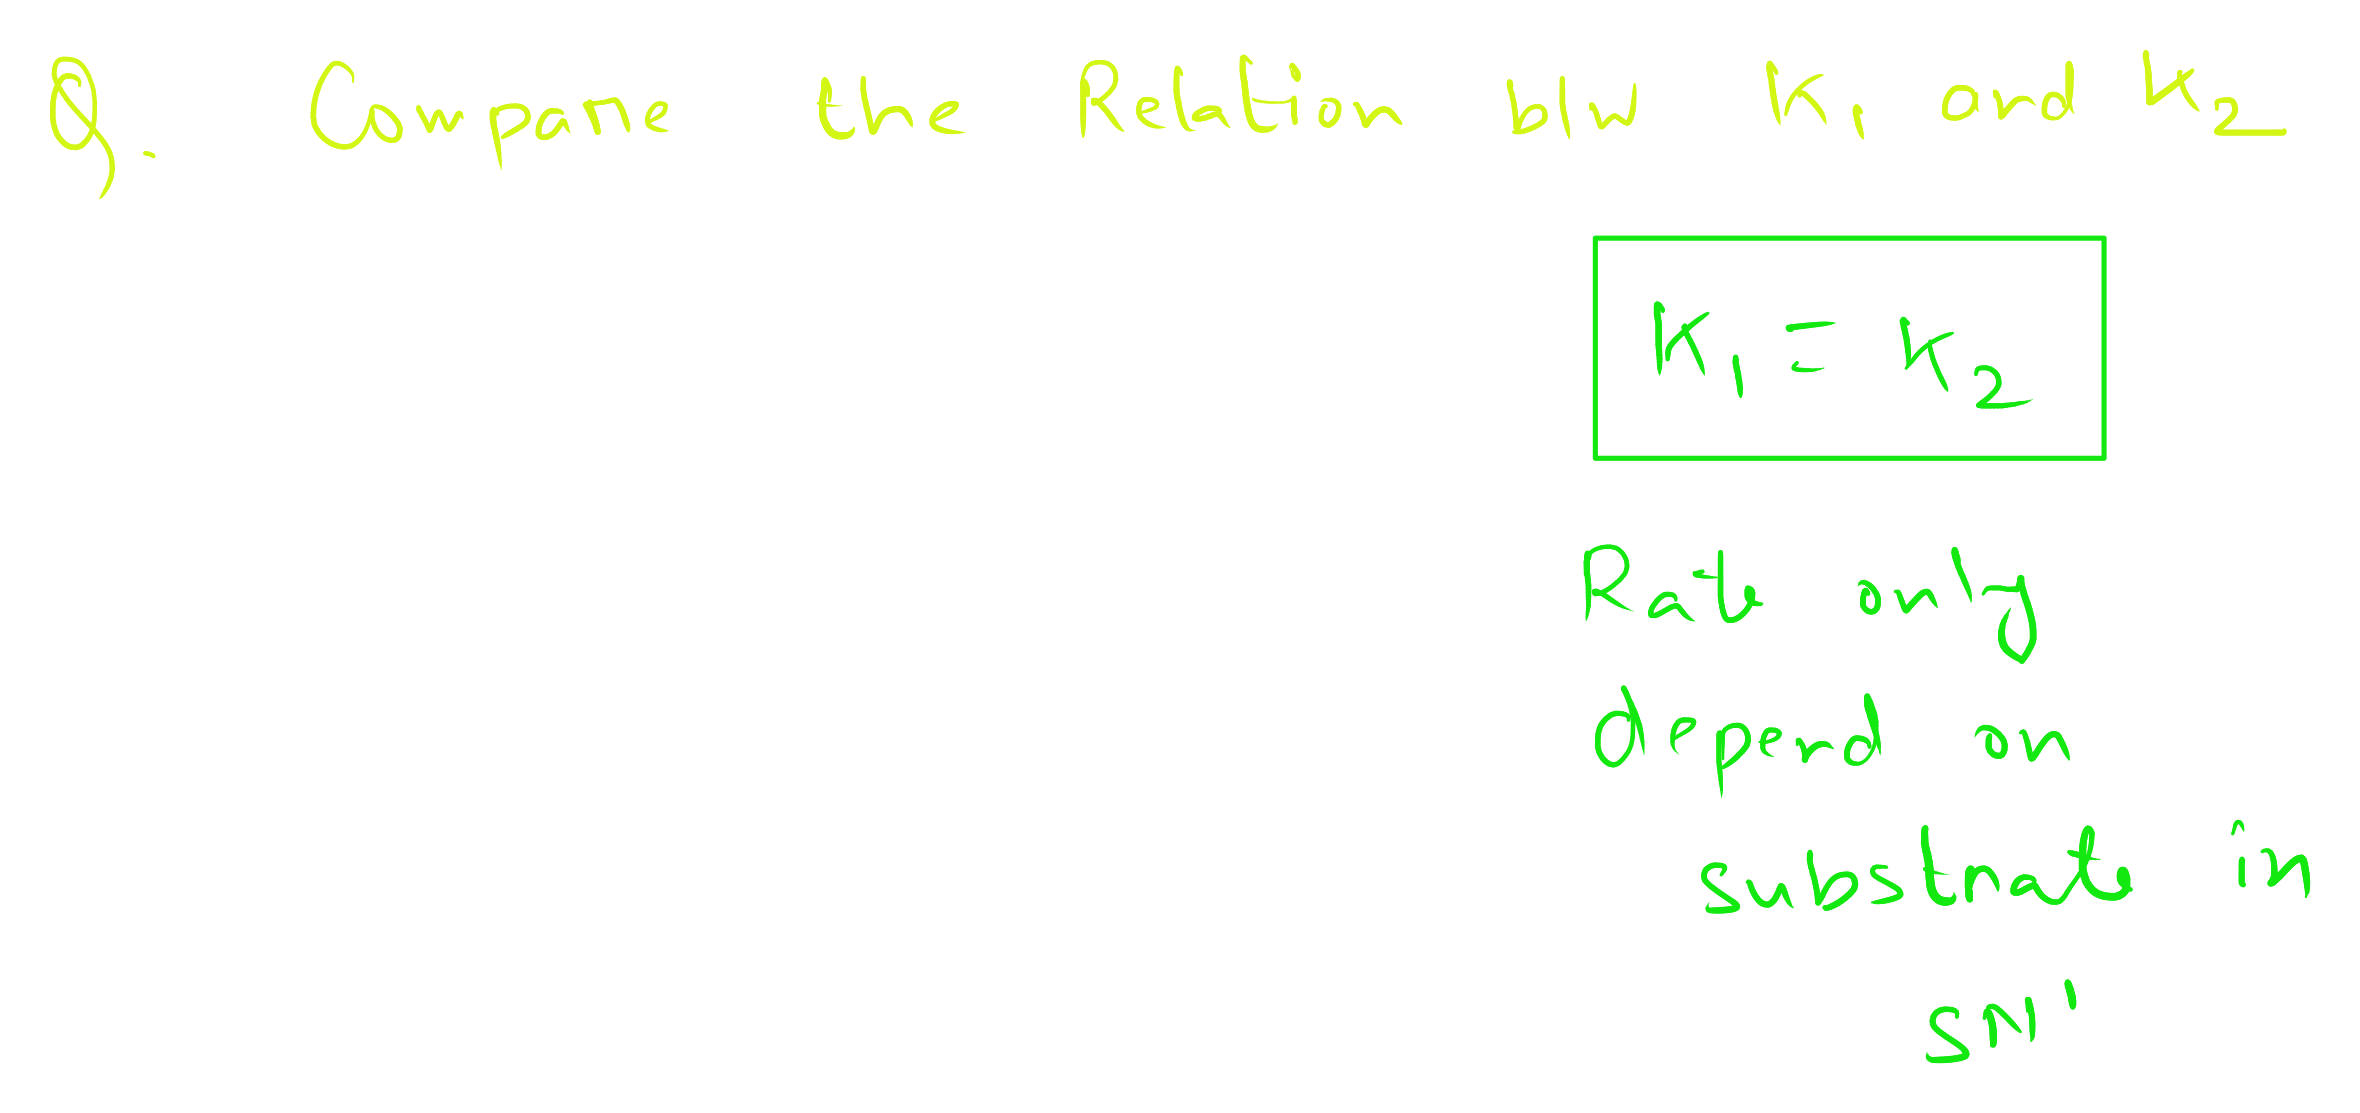 Q. Compare the Relation b/w K1 and K2
K1 = K2
Rate only
depend on
substrate in
SN1